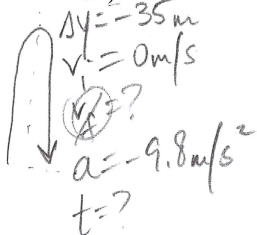 Δy=-35m
vᵢ=0m/s
=?
a=-9.8m/s²
t=?